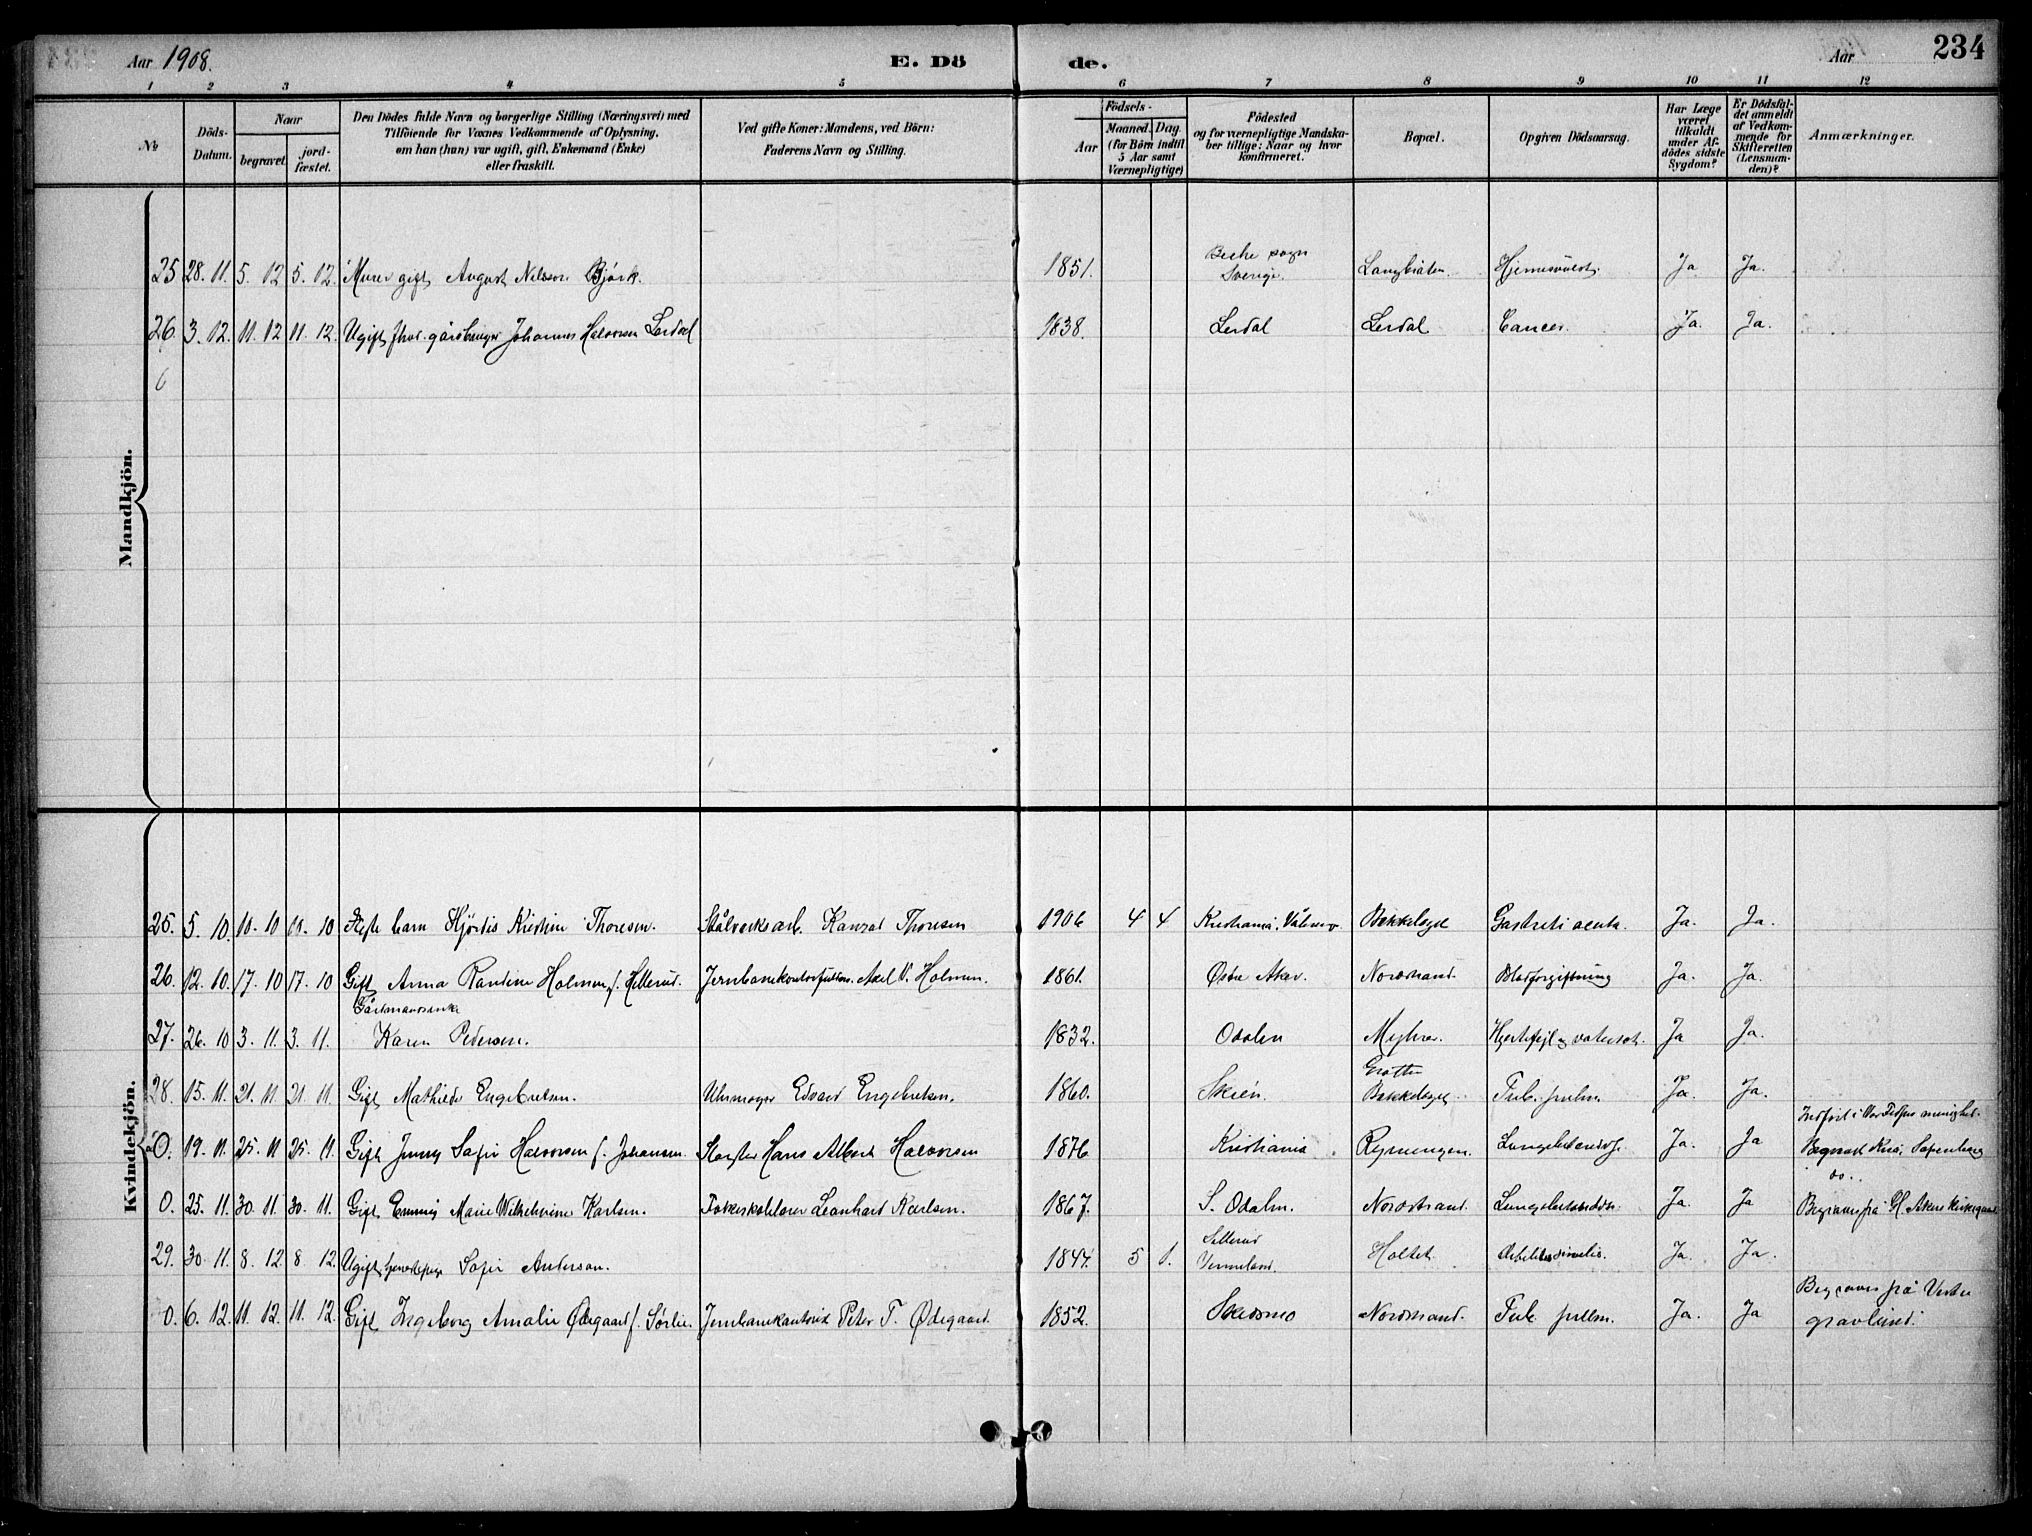 Aar 1908. E. Dö de. Aar 234
1 2 3 4 5 6 7 8 9 10 11 12
№ Döds-Datum. Naar begravet. jordfæstet. Den Dödes fulde Navn og borgerlige Stilling (Næringsvei) med Tilföiende for Voxnes Vedkommende af Oplysning, om han (hun) var ugift, gift, Enkemand (Enke) eller fraskilt. Ved gifte Koner: Mandens, ved Börn: Faderens Navn og Stilling. Födsels- Aar Maaned. Dag. (for Börn indtil 5 Aar samt Værnepligtige) Födested og for værnepligtige Mandskaber tillige: Naar og hvor konfirmeret. Bopæl. Opgiven Dödsaarsag. Har Læge været tilkaldt under Afdödes sidste Sygdom? Er Dödsfaldet anmeldt af Vedkommende for Skifteretten (Lensmanden)? Anmærkninger.
Mandkjön.
25 28. 11. 5. 12 5. 12. Murer gift August Nilsson Bjørk. 1851. sogn Sverige. Langbråten. Ja Ja.
26. 3. 12. 11. 12 11. 12. Ugift fhv. Johannes Halvorsen Lerdal 1838. Lerdal Lerdal Cancer. Ja. Ja.
Kvindekjön.
25. 5. 10. 10. 10 10. 10 barn Hjørdis Kristine Thoresen. Stålverksarb. Konrad Thoresen 1906 4 4 Kristiania, Bækkelaget Gastriti acuta. Ja. Ja.
26. 12. 10. 17. 10 17. 10 Gift Anna Randine Holmen f. Hellerud. Axel V. Holmen. 1861. Østre Aker. Nordstrand. Blodforgiftning Ja. Ja.
Gårdmandsenke
27. 26. 10 3. 11. 3. 11. Karen Pedersen. 1832. Odalen Hjertefejl og vatersot. Ja Ja.
28. 15. 11. 21. 11 21. 11. Gift Mathilde Engebretsen. Uhrmager Edvard Engebretsen. 1860. Skien. Grotten Bækkelaget. Tub. pulm. Ja. Ja.
0. 19. 11. 25. 11 25. 11. Gift Jenny Sofie Halvorsen f. Johansen. Hans Albert Halvorsen 1876. Kristiania Ryenengen. Ja. Ja Indført i Vor Frelsers menighet. Begravet Kria,
0. 25. 11. 30. 11. 30. 11. Gift Emmy Marie Wilhelmine Karlsen. Leonhard Karlsen. 1867. S. Odalen. Nordstrand. Ja. Ja do. Begraves på Gl. Akers kirkegaard
29. 30. 11. 8. 12. 8. 12. Ugift Sofie Andersen. 1844. 5 1. Sillerud Vermland. Holtet. Ja. Ja.
0. 6. 12. 11. 12. 11. 12. Gift Ingeborg Amalie Ødegaard f. Sørlie. Peter T. Ødegaard. 1852. Skedsmo Nordstrand. Tub. pulm. Ja. Ja Begraves på Vestre gravlund.